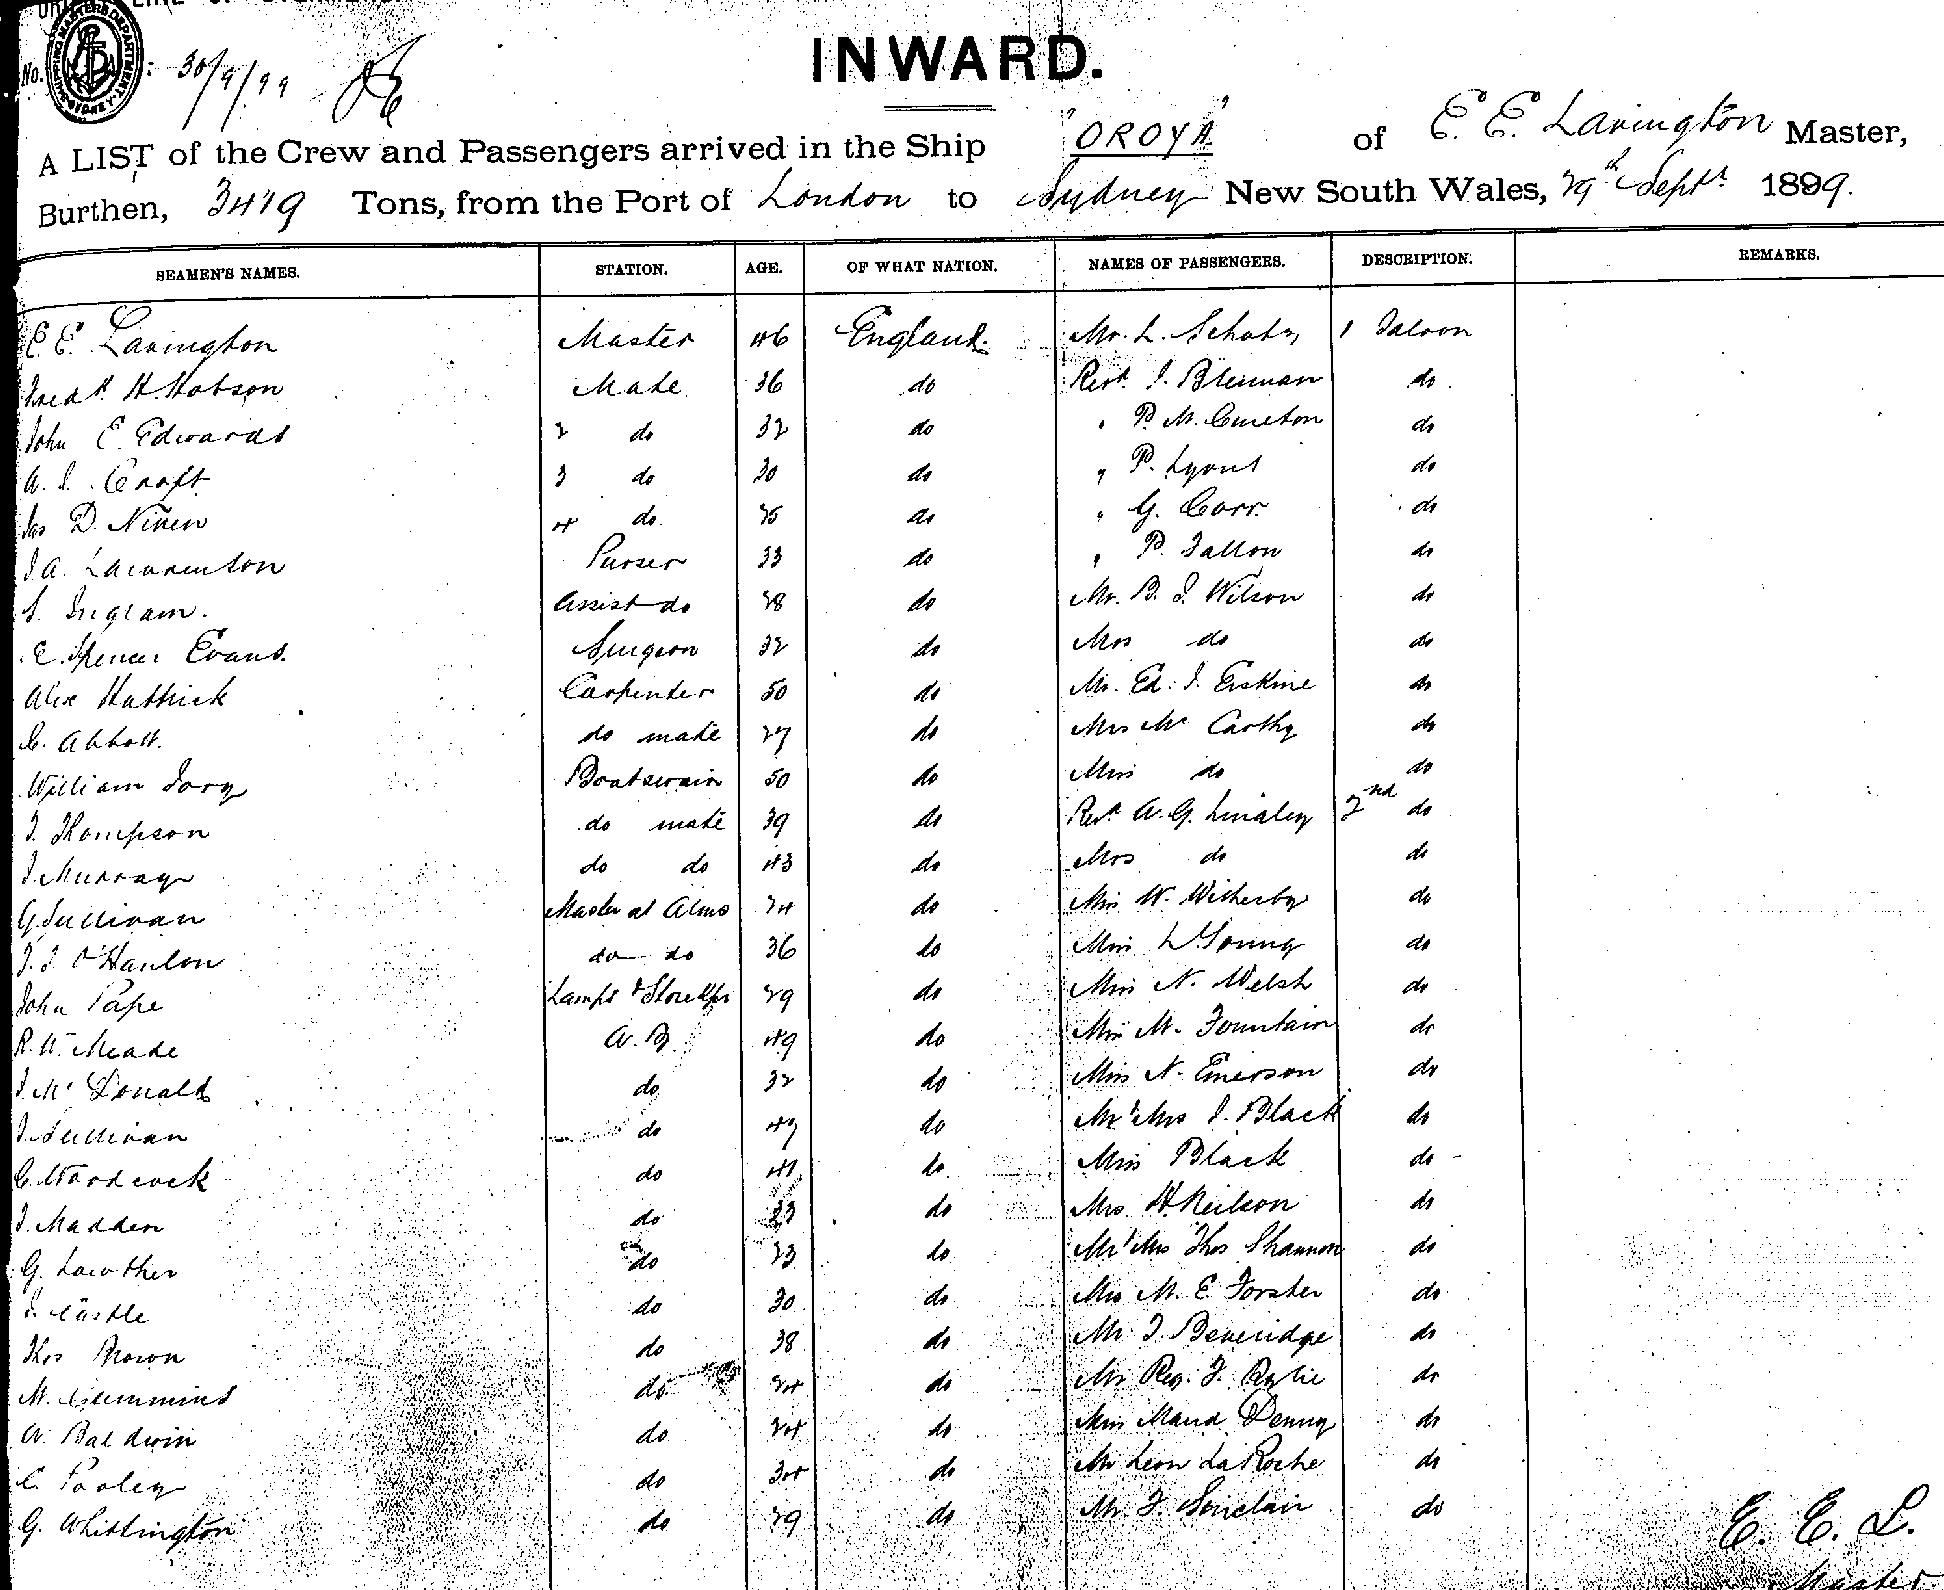 No. : 30/9/99
INWARD.
A LIST of the Crew and Passengers arrived in the Ship "OROYA" of E. E. Lavington Master,
Burthen, 3419 Tons, from the Port of London to Sydney New South Wales, 29th Sept. 1899.
SEAMEN'S NAMES. STATION. AGE. OF WHAT NATION. NAMES OF PASSENGERS. DESCRIPTION. REMARKS.
E. E. Lavington Master 46 England Mr. L. 1 Saloon
Fredk. H. Hobson Mate 36 do Revd. J. Brennan do
John E. Edwards 2 do 32 do " P. M. Cureton do
A. J. Croft 3 do 30 do " P. Lyons do
Jas D. Niven 4 do do " G. Corr do
J. A. Lawrenson Purser 33 do " P. Fallon do
S. Ingram. Assist do 28 do Mr. B. J. Wilson do
E. Spencer Evans. Surgeon 32 do Mrs do do
Alex Hattrick Carpenter 50 do Mr. Ed. J. Erskine do
C. Abbott. do mate 27 do Mrs Mc Carthy do
William Tory Boatswain 50 do Miss do do
J. Thompson do mate 39 do Revd A. G. Linsley 2nd do
J. Murray do do 43 do Mrs do do
G. Sullivan Master at Alms 24 do Miss W. Witherby do
J. J. O'Hanlon do do 36 do Miss L. Young do
John Pape Lamps & Storekpr 29 do Miss N. Welsh do
R. W. Meade A. B. 49 do Miss M. Fountain do
J. Mc Donald do 32 do Miss N. Emerson do
J. Sullivan do 47 do Mr & Mrs J. Black do
C. Woodcock do 41 do Miss Black do
J. Madden do 23 do Mrs H. Neilson do
G. Lowther do 23 do Mr & Mrs Thos Shannon do
J. Castle do 30 do Mrs M. E. Forster do
Thos Brown do 38 do Mr J. Beveridge do
M. Cummins do 24 do Mr Reg. F. Rylie do
A. Baldwin do 24 do Miss Maud Denny do
C. Pooley do 34 do Mr Leon La Roche do
G. Whittington do 29 do Mr. F. Sinclair do
E. E. L.
Master